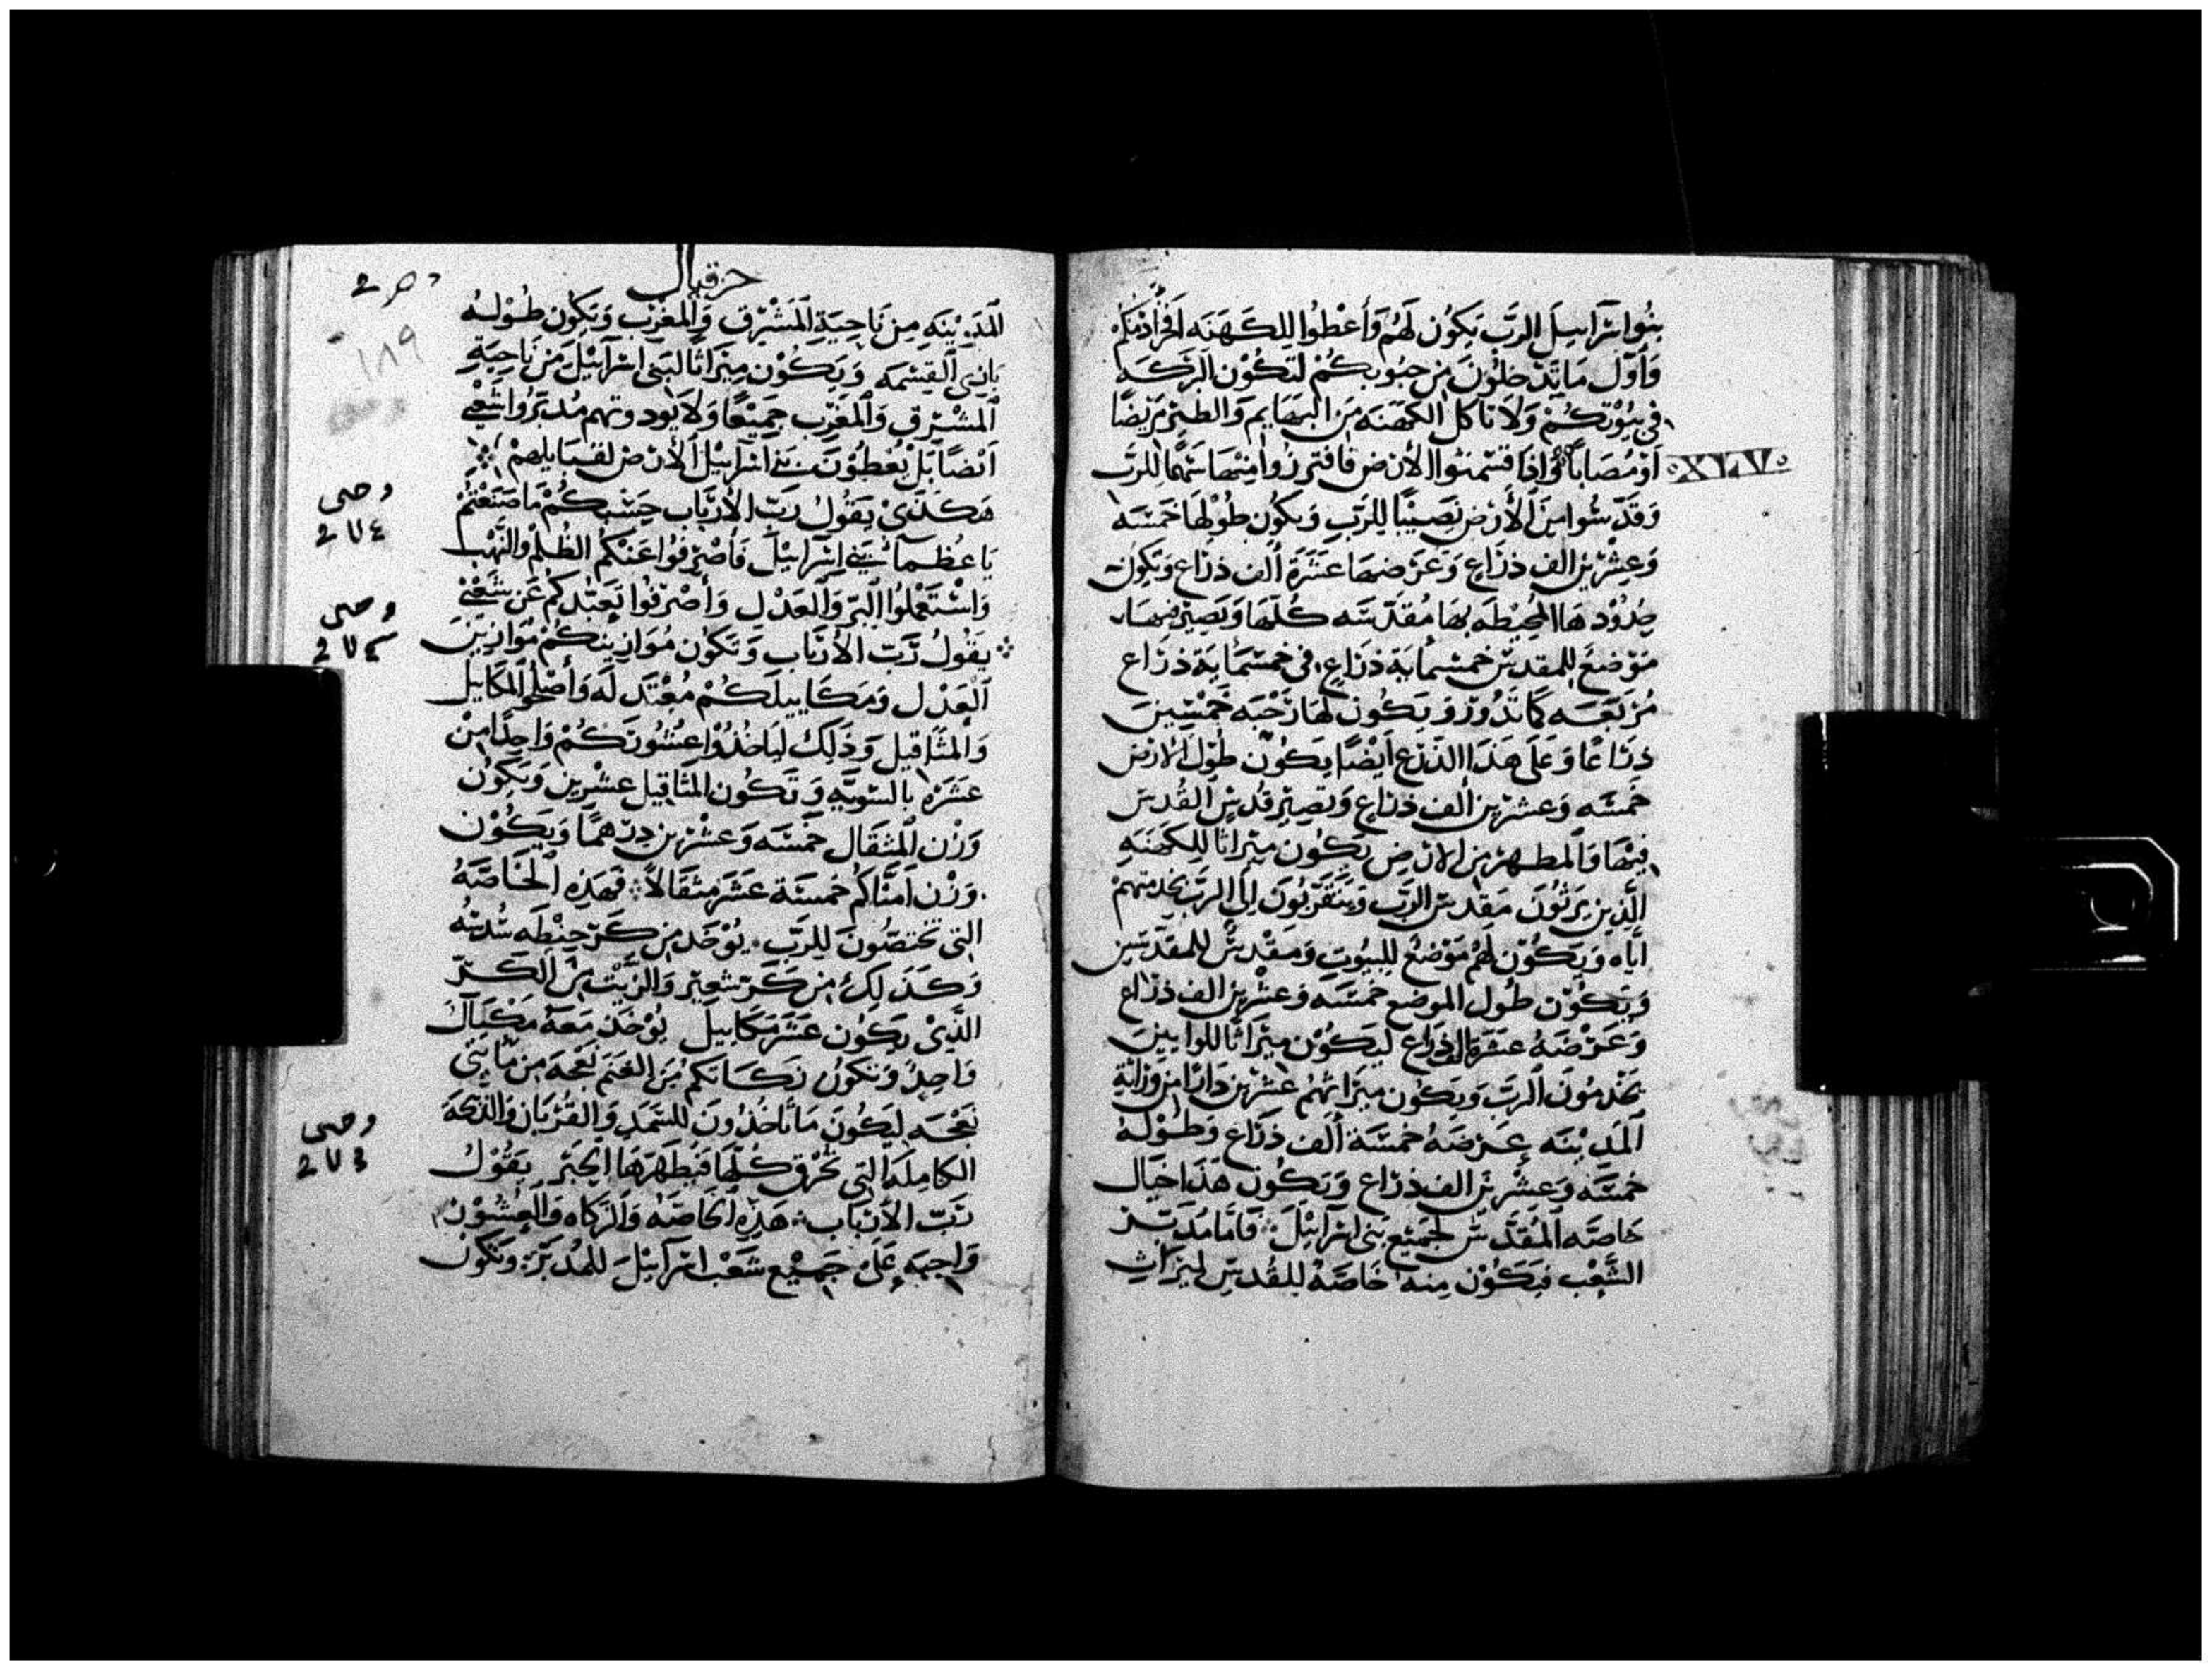 بنُوا اسْرَاييلَ الرَبّ يَكُون لَهُم وَأَعْطُوا لِلكَهَنَه
وَأوّل مَا تَدّخلُونَ مِن حبُوبكُمْ لتَكُوْن البَرَكَه
في بيُوْتكُمْ وَلَا تَاكل الكَهَنَه مِن البَهَايم وَالطَيْر مَريْضًا
اَوْ مُصَابًا وَاِذا قسَمْتُوا الأرْض فافرزُوا مِنْهَا سَهْمًا للرَبّ
XLV
وَقَدّسُوا مِنَ الأرْض نَصِيْبًا لِلرَبّ وَيكُون طُوْلهَا خَمْسَه
وَعِشْرِيْن الف ذرَاع وَعَرْضهَا عَشَرَة ألف ذرَاع وَتكوُن
حدُوْدهَا المُحِيْطَه بهَا مُقدّسَه كُلّهَا وَيَصِيْر منهَا
مَوْضعَ للمقدس خمسْمايَة ذرَاع في خمسْمايَة ذرَاع
مُرَبّعَه كمَا تَدُوْر وَيكُون لهَا رَحْبَه خَمْسِينَ
ذرَاعًا وَعَلَى هَذا الذرع أيْضًا يكُوْن طُوْل الأرْض
خَمسَه وَعشرِين ألف ذرَاع وَيَصِيْر قُدس القُدسْ
فيْهَا وَالمطهر من الأرْض يَكُون ميْرَاثًا للكَهَنَهِ
الّذِين يَرثُونَ مَقدسْ الرَبّ وَيَتَقرّبُونَ الى الرَبّ بخدمتهمْ
ايّاه وَيَكُوْن لهُمْ مَوْضعْ للبيُوت وَمقْدسْ للمقدّسيْن
وَيَكُوْن طُول الموضع خمسَه وَعشْرِين الف ذرَاع
وَعَرْضهُ عَشرَة الف ذرَاع ليَكُوْن ميْرَاثًا للواييْن
يَخْدمُونَ الرَبّ وَيَكُون ميْرَاثهُم عشْرِين دَارًا من وراية
المَديْنَه عَرضهُ خمْسَة ألف ذرَاع وَطُوْلهُ
خمسَه وَعشْرِيْن الف ذرَاع وَيَكُون هَذا حيَال
خَاصّه المُقدّسْ لجَميْع بَني اسْرَاييْل فَامّا مُدَبّر
الشّعْب فيَكُوْن منه خَاصّهْ للقُدس لميرَاث
حزقيال
١٨٩
المَديْنَه مِنْ نَاحِيَة المَشْرِق وَالمغْرب وَيَكُوْن طُوْلهُ
القسْمه وَيَكُوْن ميْرَاثًا لبَنى اسْرَاييْل مَنْ نَاحِيَةِ
المشْرِق وَالمَغْرب جَميْعًا وَلَا يُود وتهم مُدَبّرُوا شَعْبي
ايْضًا بَلْ يُعْطُوْنَ بَني اسْرَاييْل الأرْض لقبَايلهمْ
هَكَذَى يَقُولُ رَبّ الأرْبَاب حَسْبكُمْ مَا صَنَعْتُمْ
يَا عُظمآ بَني اسْرَاييْل فأصْرِفُوا عَنْكُم الظلم وَالنَهْب
وَاسْتَعْملُوا البرّ وَالعَدْل وَأصْرفُوا تَعَبّدكمُ عَن شَعْبي
يَقُولُ رَبّ الأرْبَاب وَتَكُون مُوَازينكُمْ مُوَازيْن
العَدْل وَمَكَاييلكُمْ مُعْتَدلَه وَأصْلحوا المكاييل
وَالمثَاقيل وَذلكَ ليَاخُذُوا عُشُورَكُمْ وَاحِدًا مِنْ
عَشَرَه بالسّويّه وَتَكُون المثَاقيل عشْرِين وَيَكُوْن
وَزْن المثقَال خَمْسَه وَعشْرِين درْهمًا وَيَكُوْن
وَزْن امنَاكُم خمسَة عَشَر مثقَالاً فَهَذِه الخَاصّهُ
التى تختصّونَ للرَبّ يُوْخَذ من كَرّ حِنْطَه سُدسهُ
وَكَذَلكَ من كَرّ شعِيْر وَالزَيْت منَ الكَرّ
الّذى يَكُون عَشرَ مَكَاييل يُوْخَذ مَعَهُ مِكْيَالْ
وَاحِدْ وَتَكُونُ زَكَاتكُم من الغَنَم نَعْجَه من مَايتَى
نَعْجَه ليَكُونَ مَا تَاخُذُونَ للسَمَدِ وَالقُرْبَان وَالذّبيحَه
الكامِلَه التى تحْرق كُلّهَا فيُطَهّرهَا الحَبْر يَقُوْلُ
رَبّ الأرْبَاب هَذِه الخَاصّه وَالزكاه وَالعشُوْر
وَاجبَه عَلى جَميْع شَعْب اسْرَاييْل للمُدَبّر وَيَكُونُ